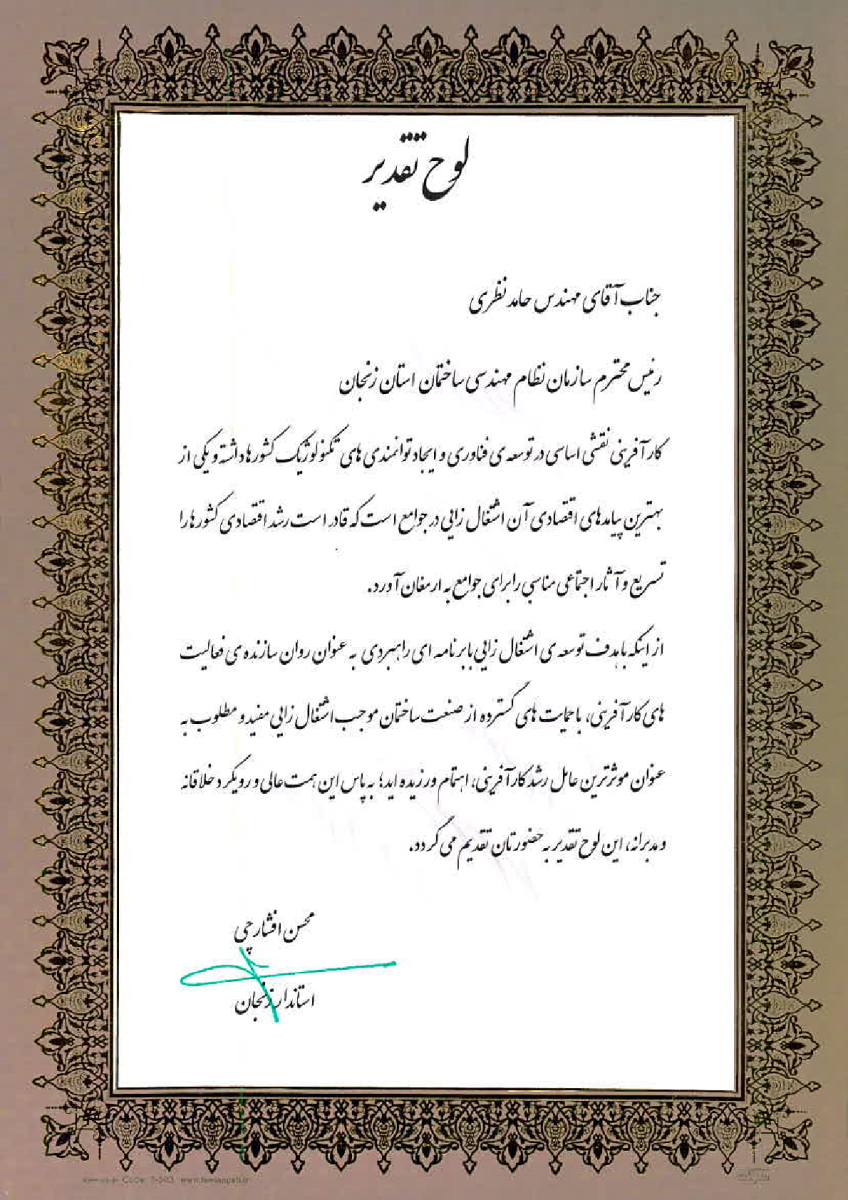 لوح تقدیر
جناب آقای مهندس حامد نظری
رئیس محترم سازمان نظام مهندسی ساختمان استان زنجان
کارآفرینی نقشی اساسی در توسعه ی فناوری و ایجاد توانمندی های تکنولوژیک کشورها داشته و یکی از
بهترین پیامدهای اقتصادی آن اشتغال زایی در جوامع است که قادر است رشد اقتصادی کشورها را
تسریع و آثار اجتماعی مناسبی را برای جوامع به ارمغان آورد.
از اینکه با هدف توسعه ی اشتغال زایی با برنامه ای راهبردی به عنوان روان سازنده ی فعالیت
های کارآفرینی، با حمایت های گسترده از صنعت ساختمان موجب اشتغال زایی مفید و مطلوب به
عنوان موثرترین عامل رشد کارآفرینی، اهتمام ورزیده اید؛ به پاس این همت عالی و رویکرد خلاقانه
و مدبرانه، این لوح تقدیر به حضورتان تقدیم می گردد.
محسن افشارچی
استاندار زنجان